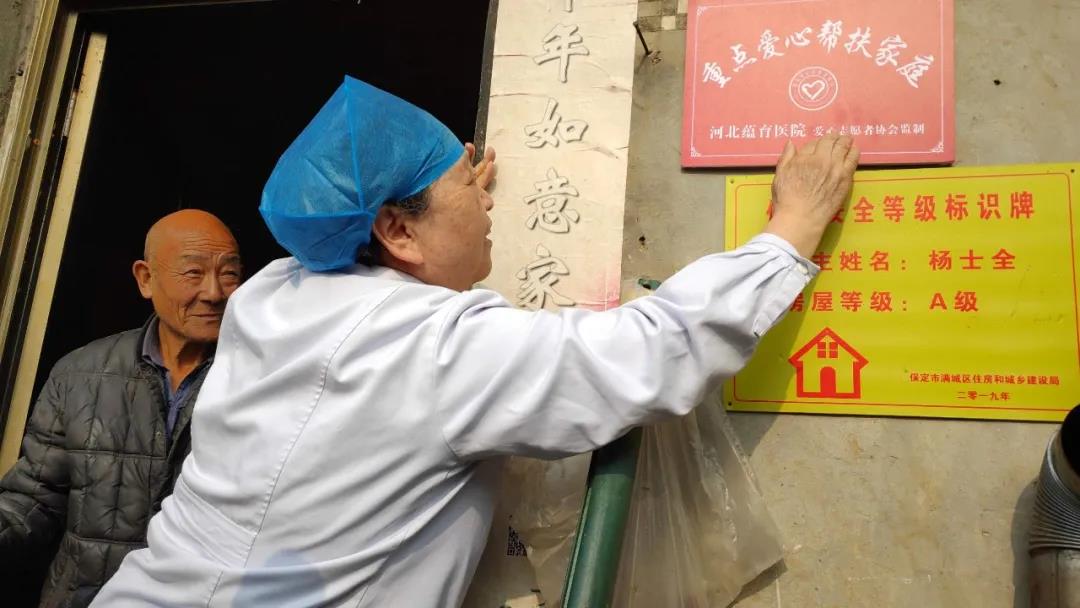 年如意家
重点爱心帮扶家庭
河北蕴育医院 爱心志愿者协会监制
全等级标识牌
主姓名：杨士全
房屋等级：A级
保定市满城区住房和城乡建设局
二零一九年